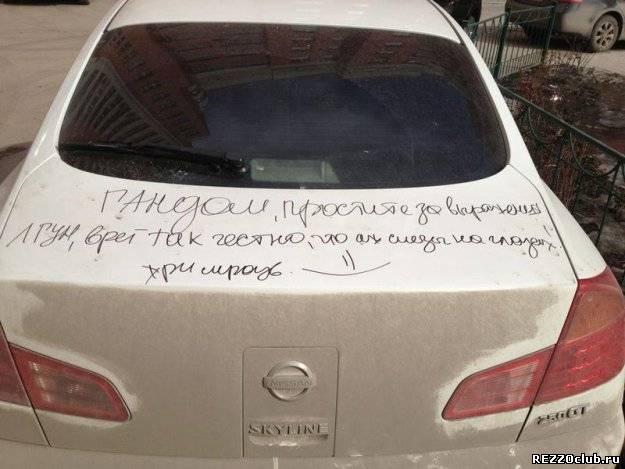 ГАНДОН, простите за выражение
ЛГУН, врет так честно, что аж слезы на глазах!
))
NISSAN
SKYLINE
250GT
REZZOclub.ru